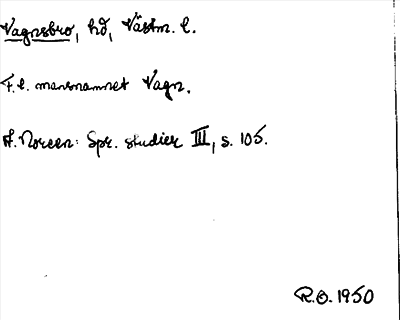 Vagnsbro, hd, Västm. l.
F. l. mansnamnet Vagn.
A. Noreen: Spr. studier III, s. 105.
R.O. 1950